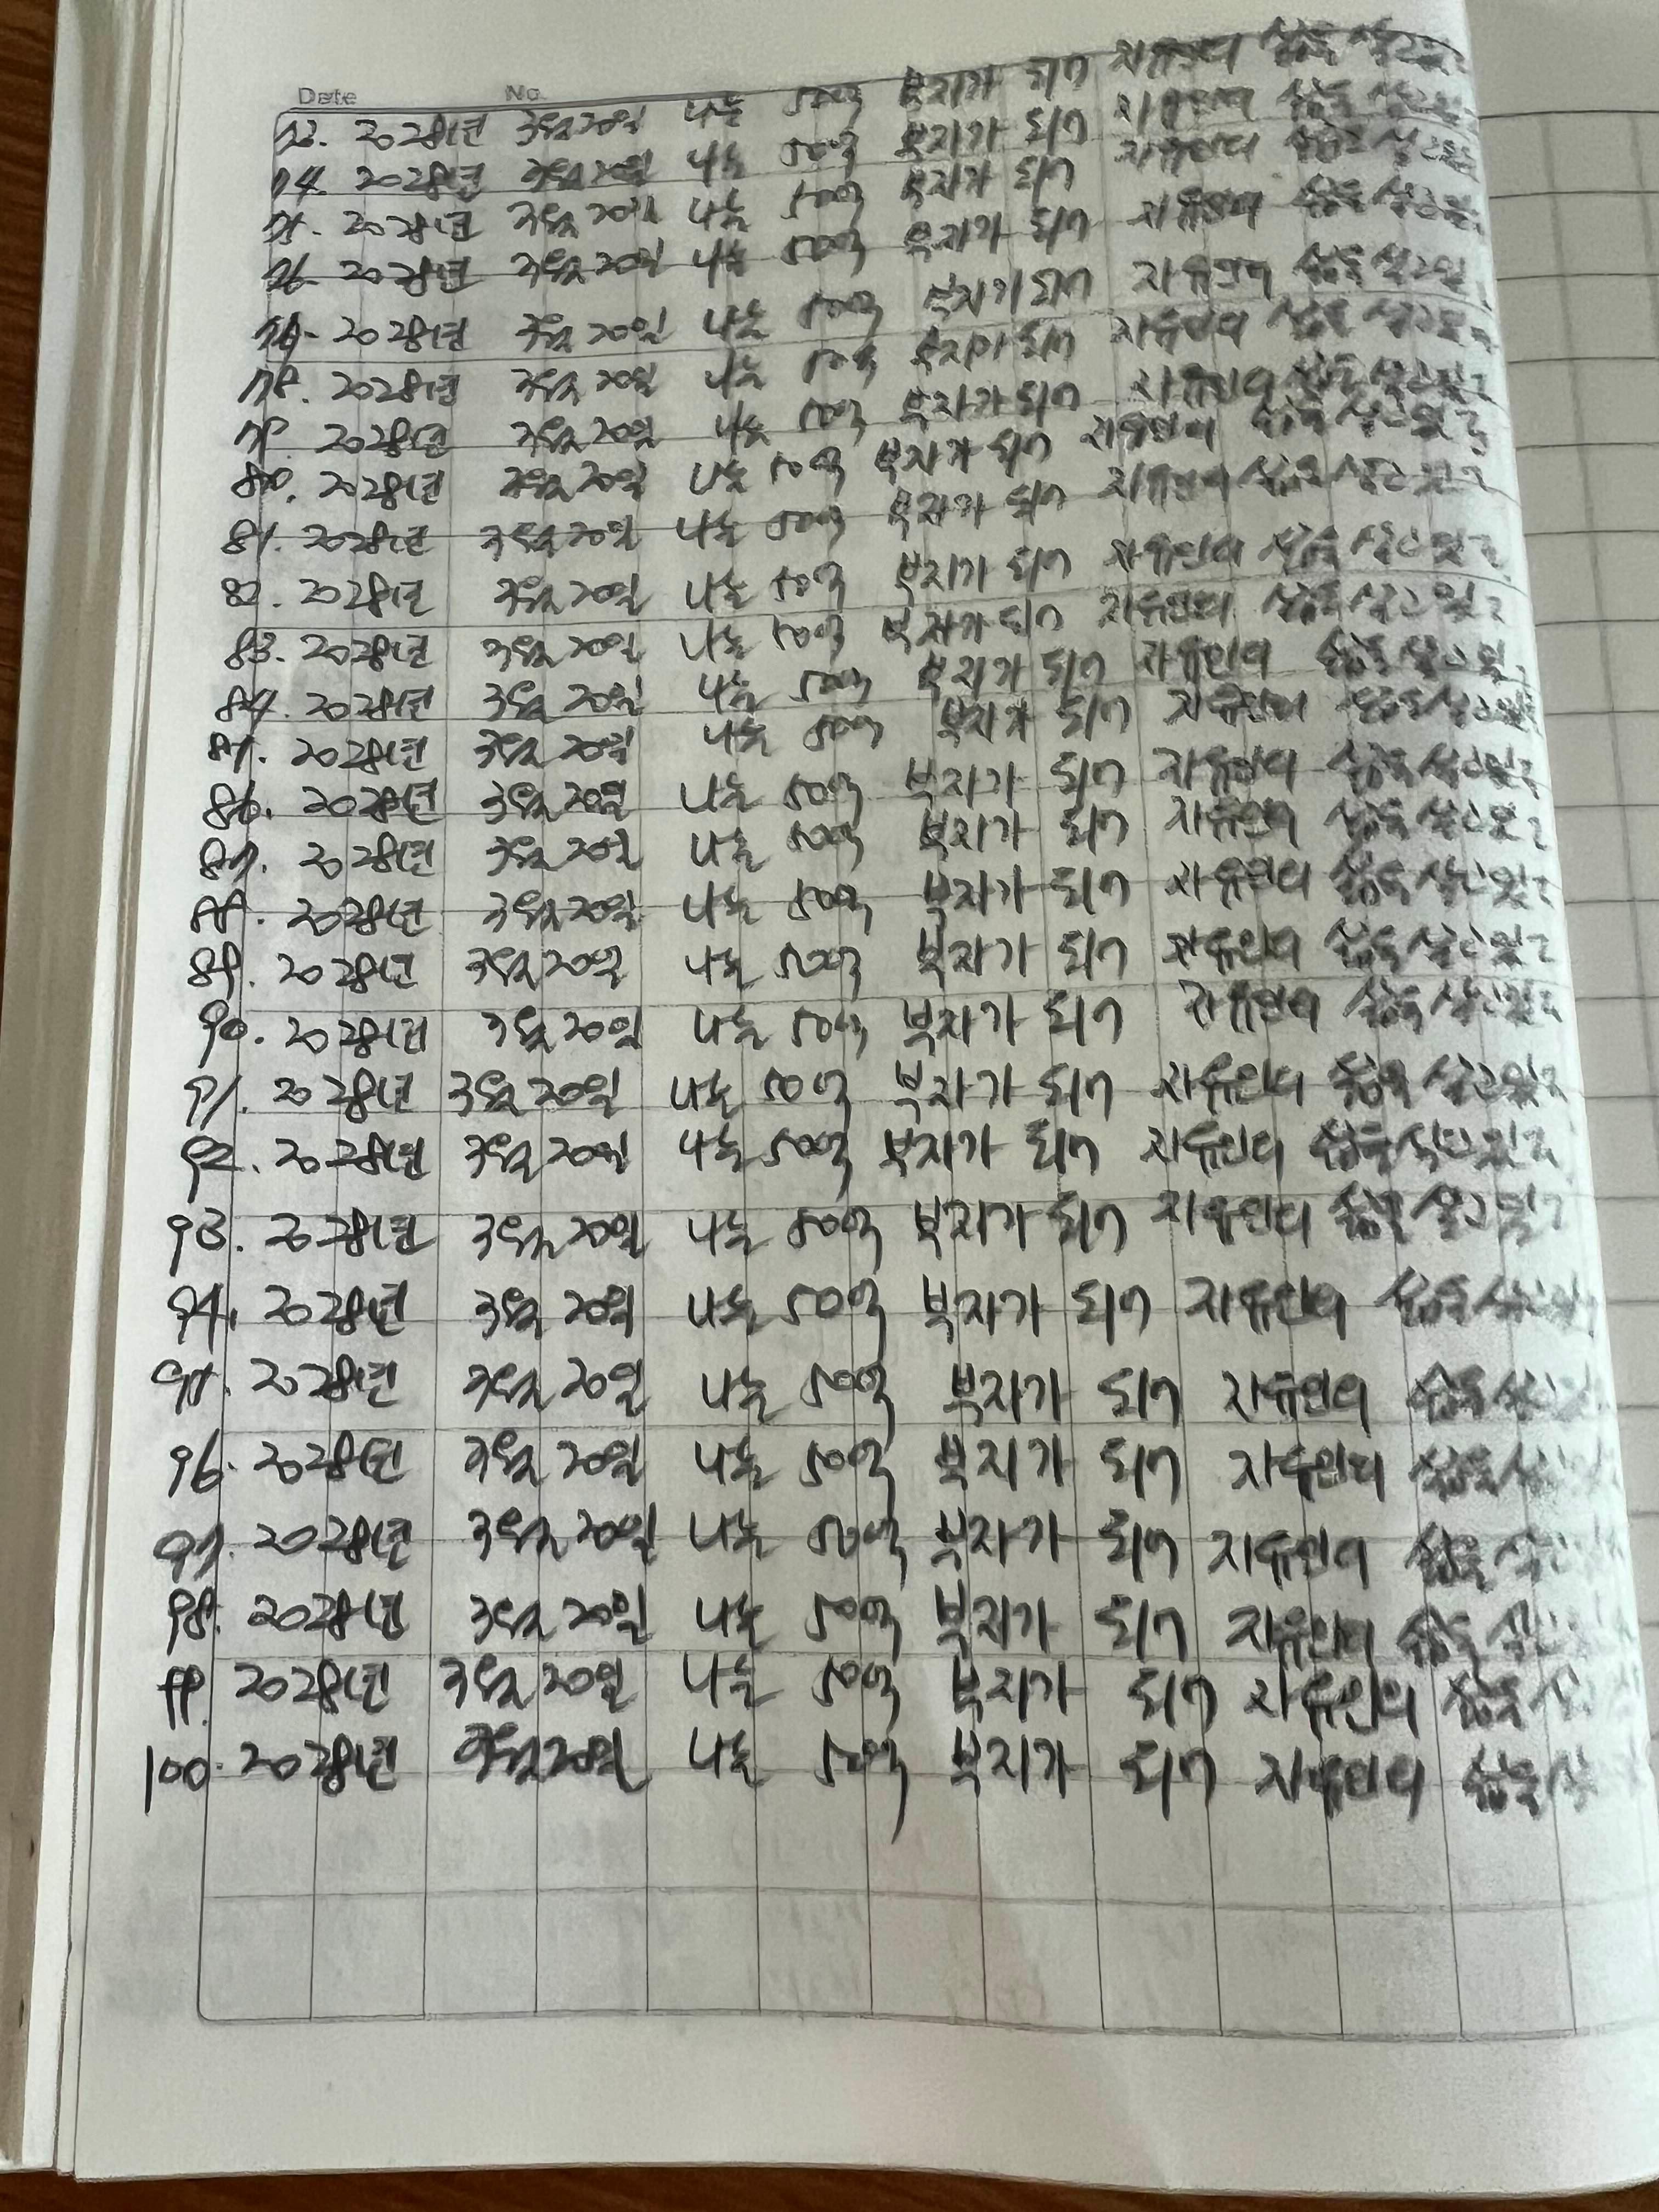 Date No.
73. 2028년 3월 20일 나는 50억 부자가 되어 자유인의 삶을 살고
74. 2028년 3월 20일 나는 50억 부자가 되어 자유인의 삶을 살고
75. 2028년 3월 20일 나는 50억 부자가 되어 자유인의 삶을 살고
76. 2028년 3월 20일 나는 50억 부자가 되어 자유인의 삶을 살고
77. 2028년 3월 20일 나는 50억 부자가 되어 자유인의 삶을 살고
78. 2028년 3월 20일 나는 50억 부자가 되어 자유인의 삶을 살고
79. 2028년 3월 20일 나는 50억 부자가 되어 자유인의 삶을 살고있
80. 2028년 3월 20일 나는 50억 부자가 되어 자유인의 삶을 살고있
81. 2028년 3월 20일 나는 50억 부자가 되어 자유인의 삶을 살고있
82. 2028년 3월 20일 나는 50억 부자가 되어 자유인의 삶을 살고있
83. 2028년 3월 20일 나는 50억 부자가 되어 자유인의 삶을 살고있
84. 2028년 3월 20일 나는 50억 부자가 되어 자유인의 삶을 살고있
85. 2028년 3월 20일 나는 50억 부자가 되어 자유인의 삶을 살고있
86. 2028년 3월 20일 나는 50억 부자가 되어 자유인의 삶을 살고있
87. 2028년 3월 20일 나는 50억 부자가 되어 자유인의 삶을 살고있
88. 2028년 3월 20일 나는 50억 부자가 되어 자유인의 삶을 살고있
89. 2028년 3월 20일 나는 50억 부자가 되어 자유인의 삶을 살고있
90. 2028년 3월 20일 나는 50억 부자가 되어 자유인의 삶을 살고있
91. 2028년 3월 20일 나는 50억 부자가 되어 자유인의 삶을 살고있
92. 2028년 3월 20일 나는 50억 부자가 되어 자유인의 삶을 살고있
93. 2028년 3월 20일 나는 50억 부자가 되어 자유인의 삶을 살고있
94. 2028년 3월 20일 나는 50억 부자가 되어 자유인의 삶을 살고
95. 2028년 3월 20일 나는 50억 부자가 되어 자유인의 삶을 살고
96. 2028년 3월 20일 나는 50억 부자가 되어 자유인의 삶을 살
97. 2028년 3월 20일 나는 50억 부자가 되어 자유인의 삶을 살
98. 2028년 3월 20일 나는 50억 부자가 되어 자유인의 삶을 살
99. 2028년 3월 20일 나는 50억 부자가 되어 자유인의 삶을 살
100. 2028년 3월 20일 나는 50억 부자가 되어 자유인의 삶을 살